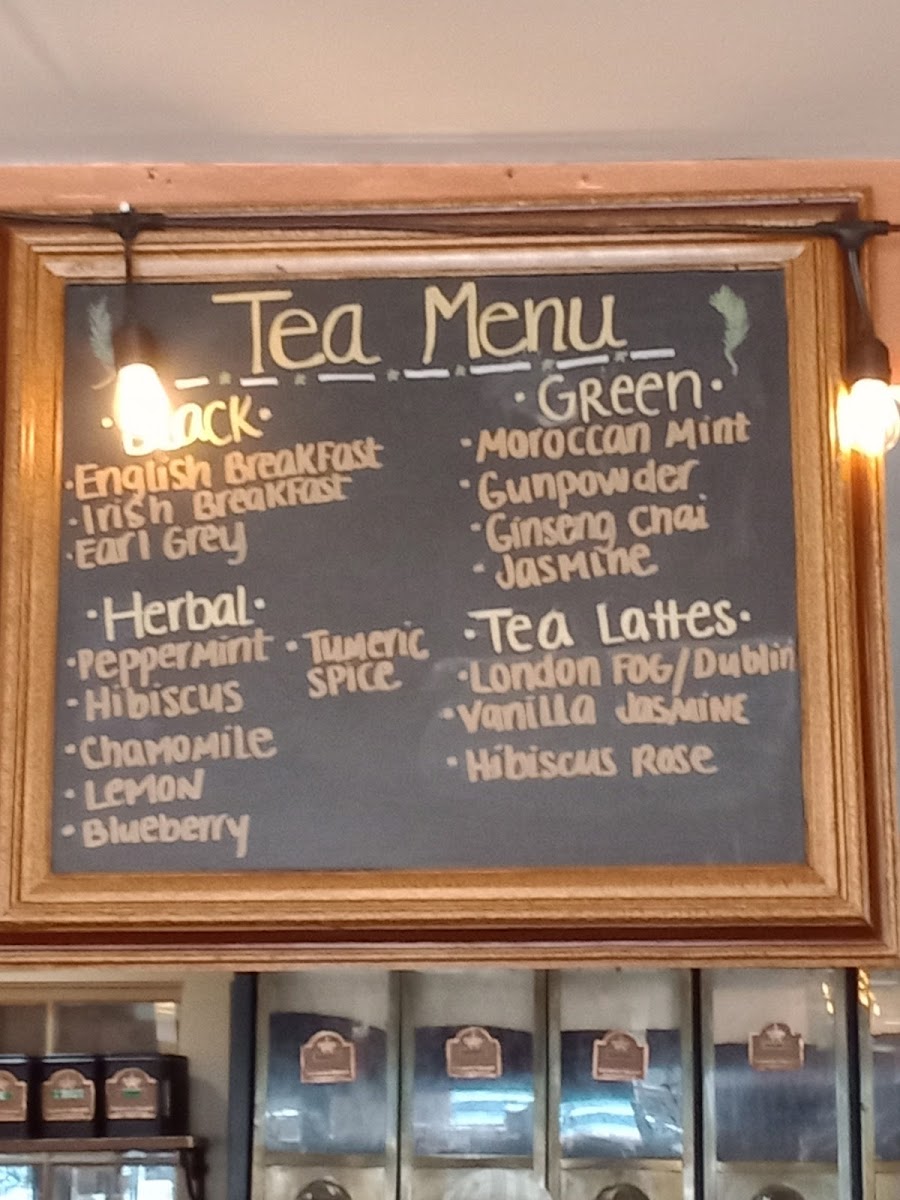 Tea Menu
• Black •
• English Breakfast
• Irish Breakfast
• Earl Grey
• Herbal •
• Peppermint
• Hibiscus
• Chamomile
• Lemon
• Blueberry
• Tumeric
Spice
• Green •
• Moroccan Mint
• Gunpowder
• Ginseng Chai
• Jasmine
• Tea Lattes •
• London Fog/Dublin
• Vanilla Jasmine
• Hibiscus Rose